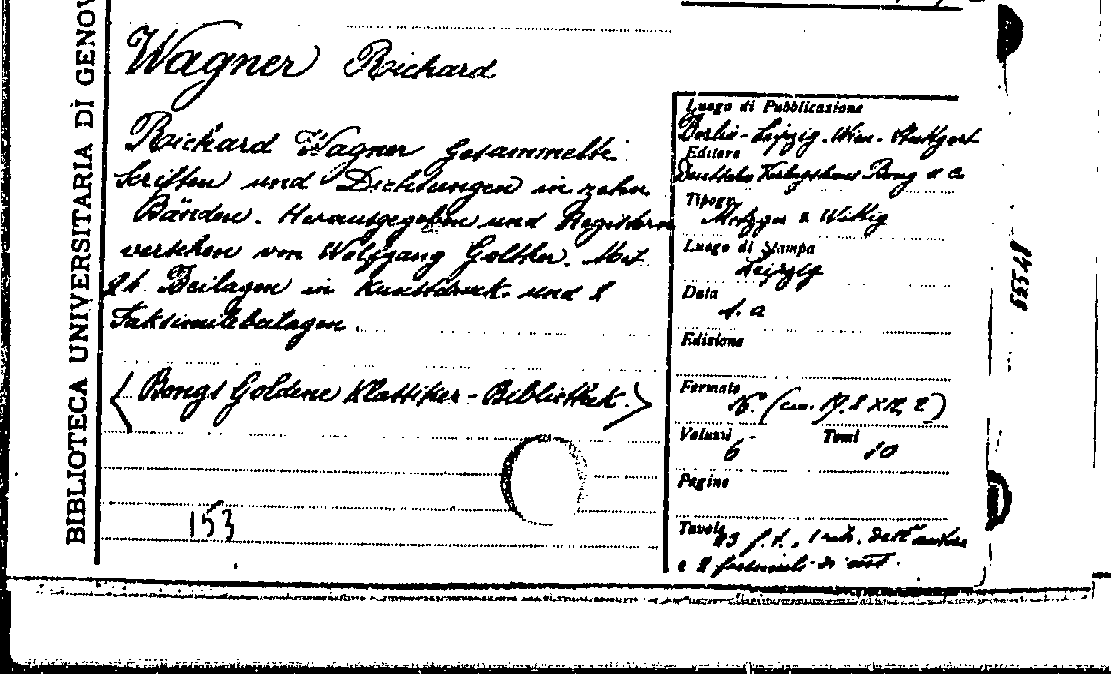 BIBLIOTECA UNIVERSITARIA DI GENOV
Wagner Richard
Richard Wagner Gesammelte
Schriften und Dichtungen in zehn
Bänden. Herausgegeben und Registern
versehen von Wolfgang Golther. Mit
21 Beilagen in Kunstdruck und 2
Faksimilebeilagen.
〈Bongs Goldene Klassiker-Bibliothek.〉
153
Luogo di Pubblicazione
Berlin-Leipzig-Wien-Stuttgart
Editore
Deutsches Verlagshaus Bong & Co
Tipogr.
Metzger & Wittig
Luogo di Stampa
Leipzig
Data
s. a
Edizione
Formato
16. (cm. 17,8 X 12,2)
Volumi 6 Tomi 10
Pagine
Tavole 23 f.t., 1 ritr. dell'autore
e 2 facsimili di aut.